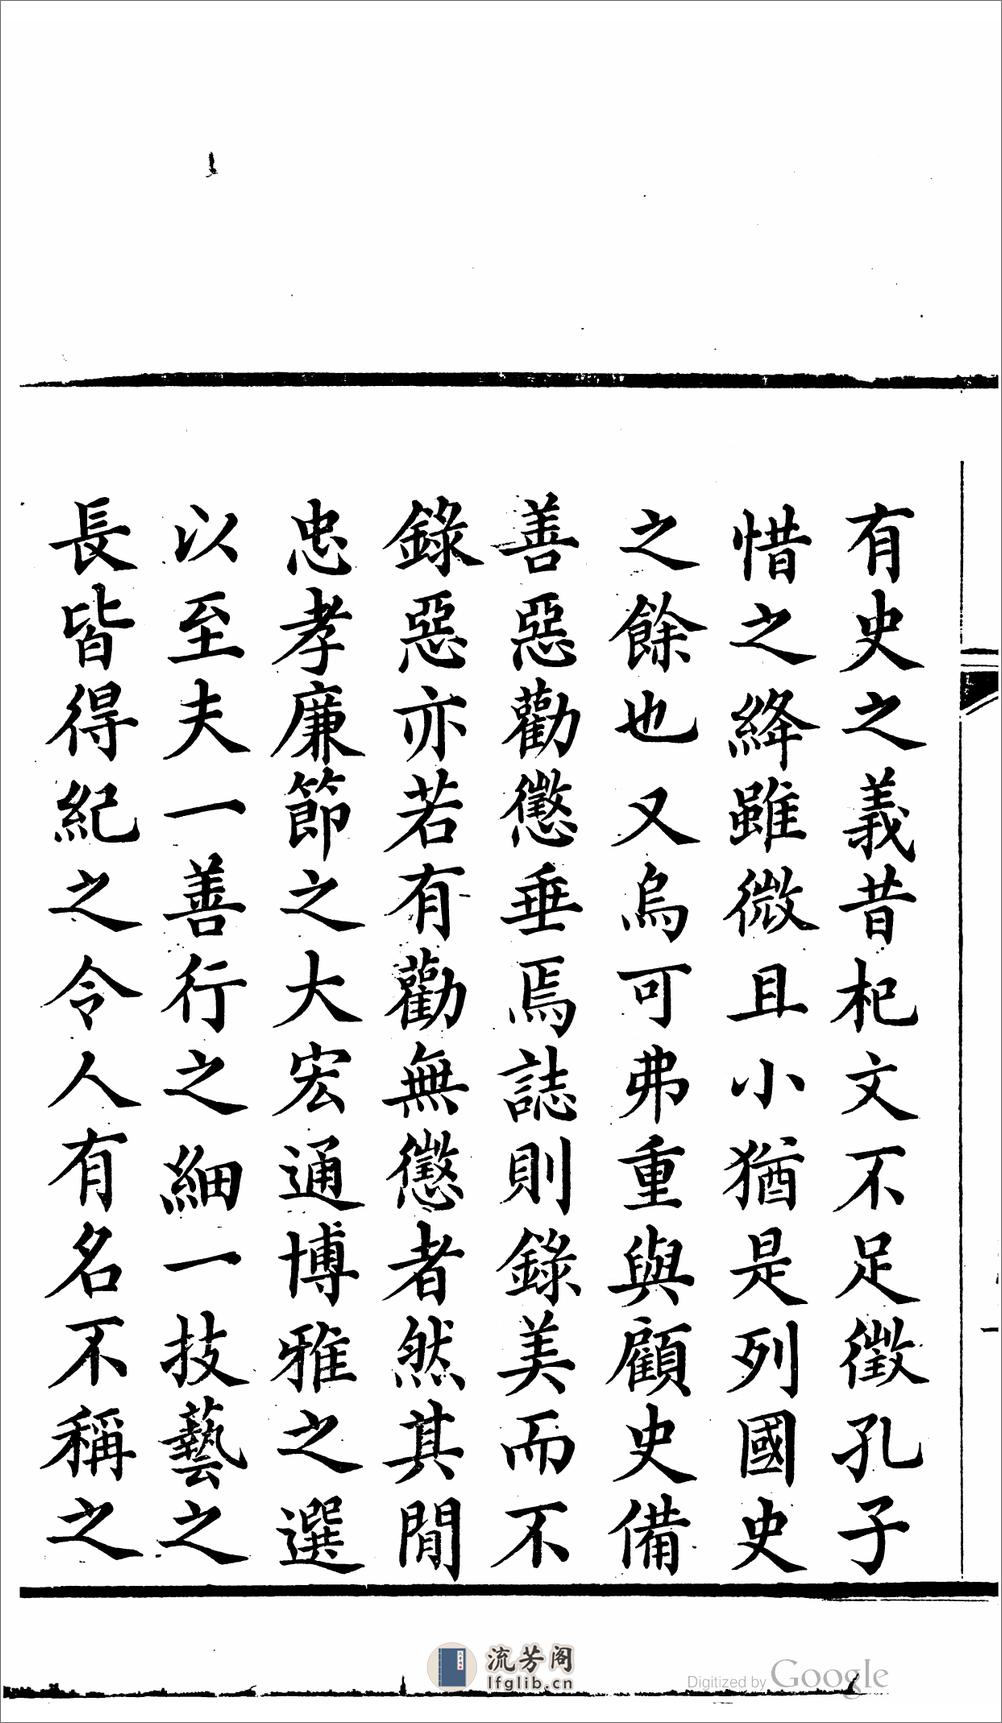 有史之義昔杞文不足徵孔子
惜之絳雖微且小猶是列國史
之餘也又烏可弗重與顧史備
善惡勸懲垂焉誌則錄美而不
錄惡亦若有勸無懲者然其閒
忠孝廉節之大宏通博雅之選
以至夫一善行之細一技藝之
長皆得紀之令人有名不稱之
流芳阁
lfglib.cn
Digitized by Google